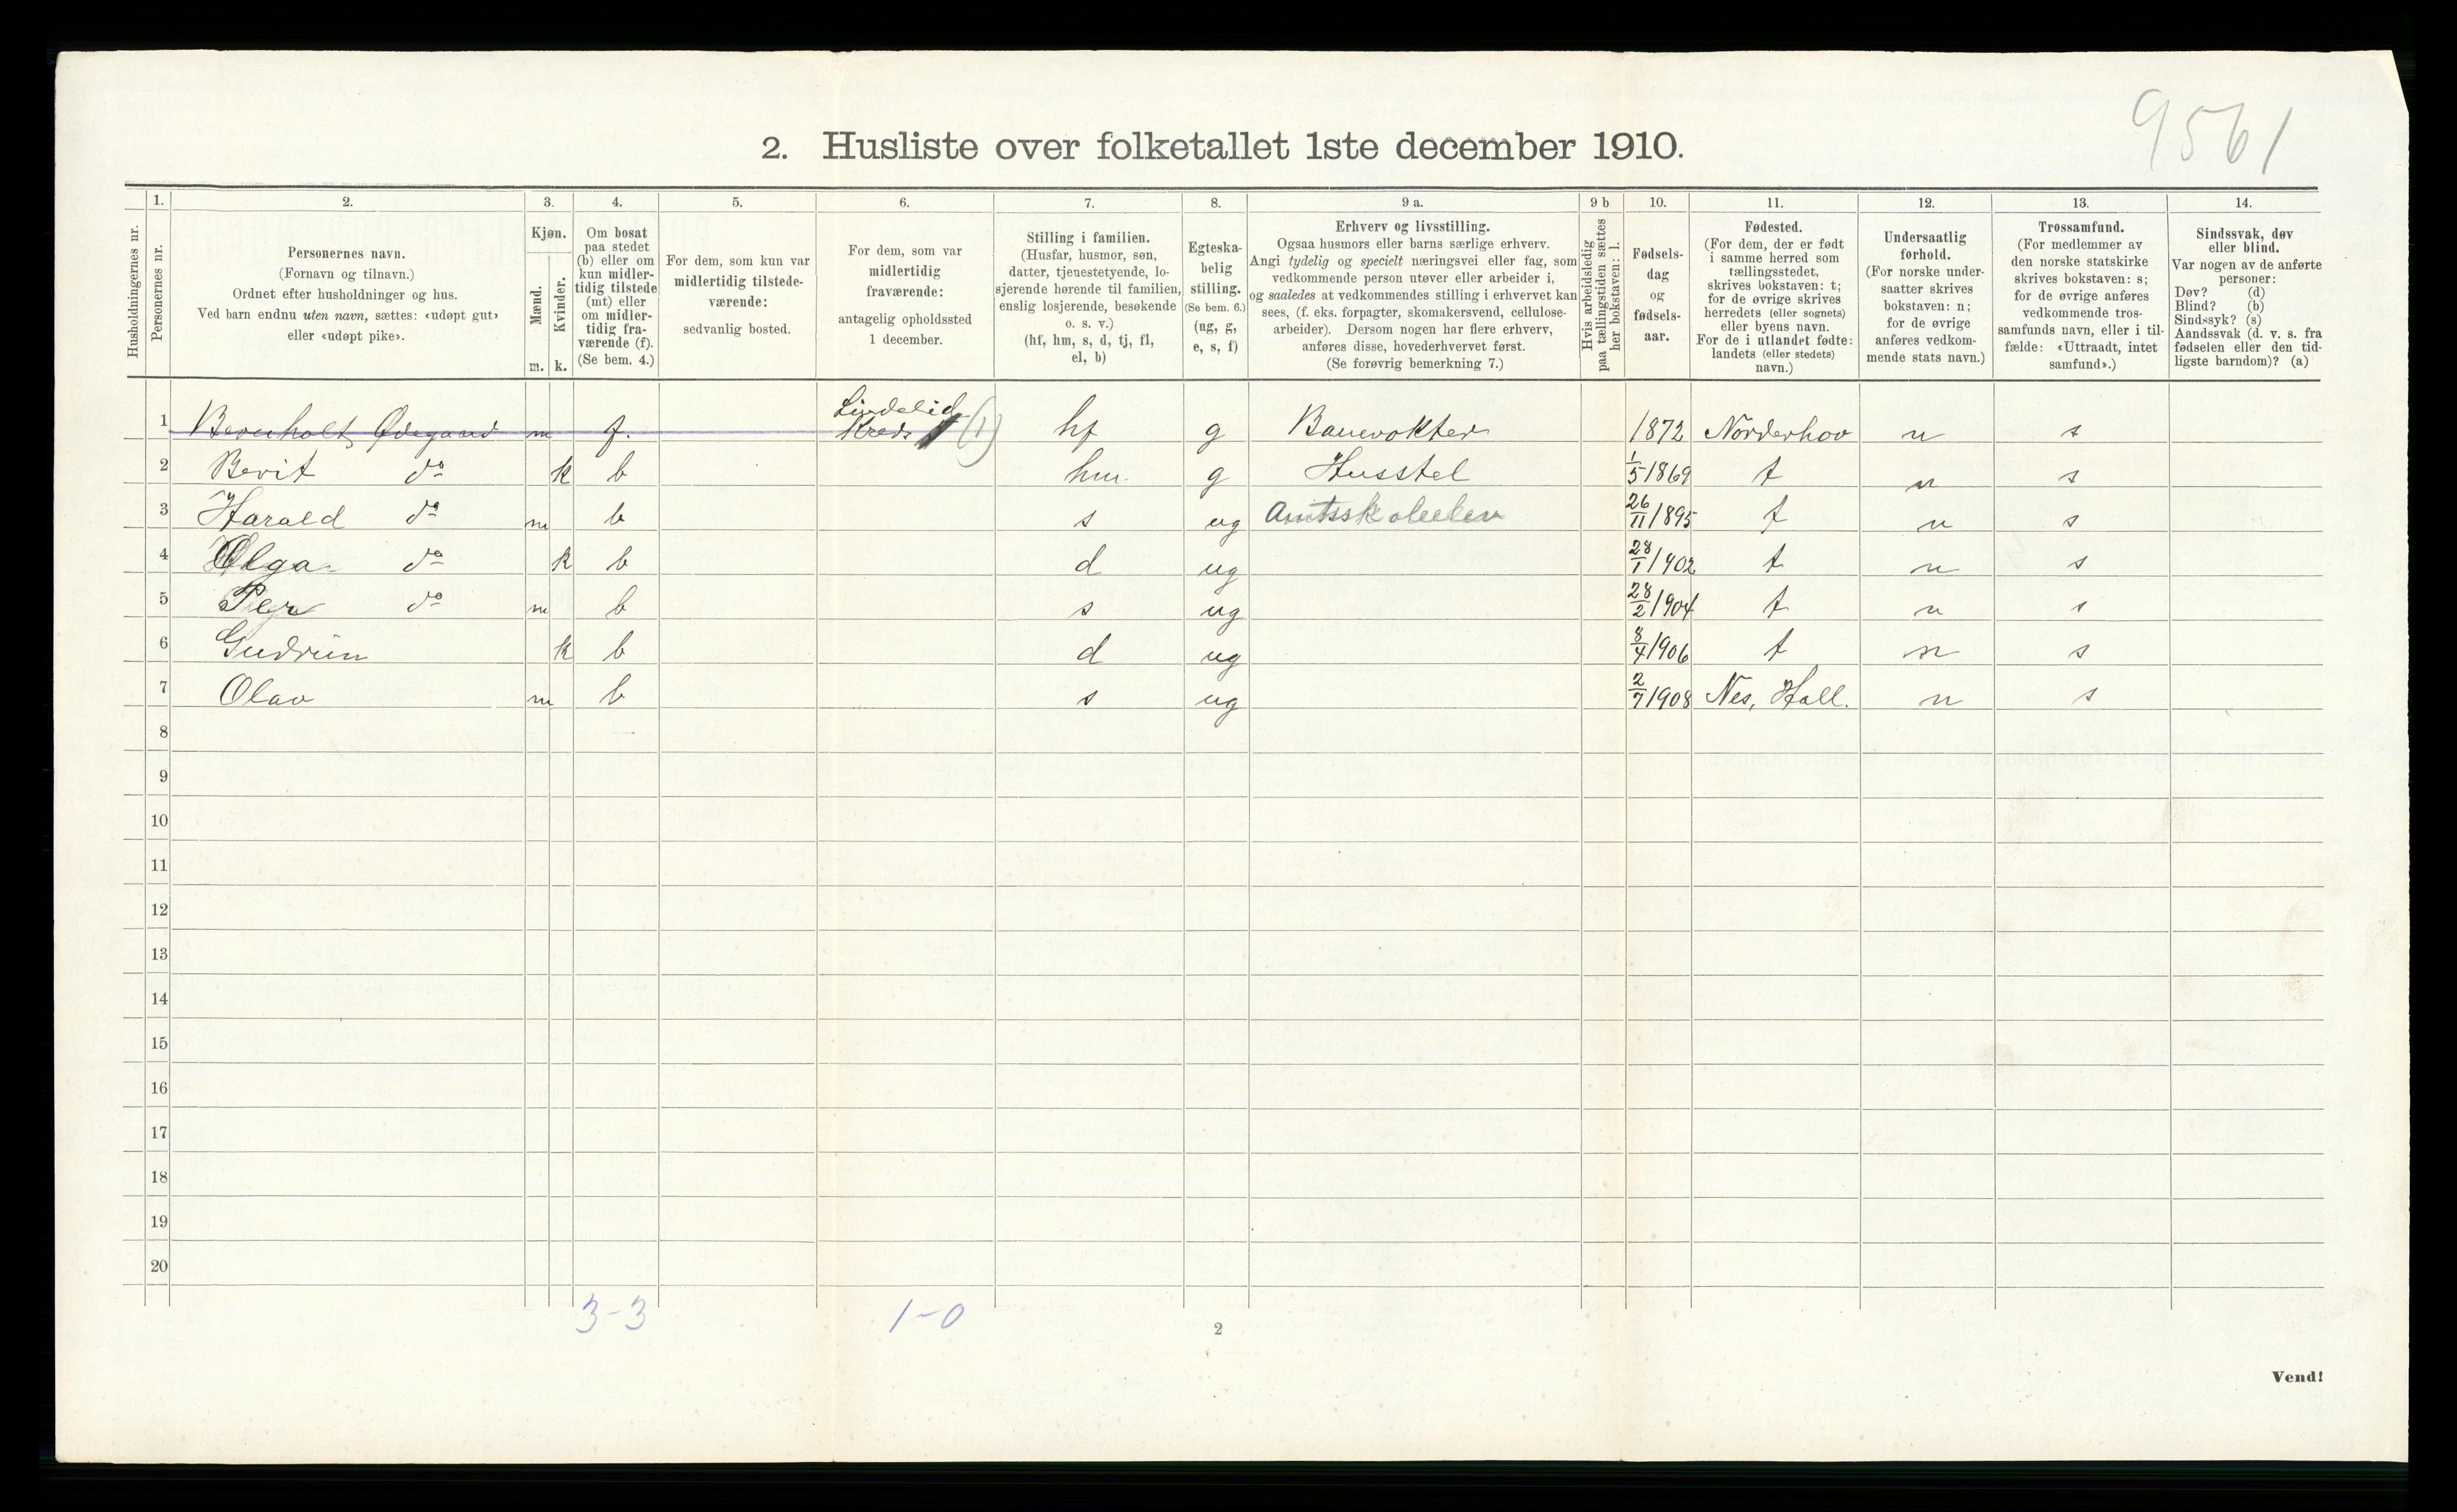 9561
2. Husliste over folketallet 1ste december 1910.
Husholdningernes nr.
1. Personernes nr.
2. Personernes navn. (Fornavn og tilnavn.) Ordnet efter husholdninger og hus. Ved barn endnu uten navn, sættes: «udøpt gut» eller «udøpt pike».
3. Kjøn. Mænd. m. Kvinder. k.
4. Om bosat paa stedet (b) eller om kun midlertidig tilstede (mt) eller om midlertidig fraværende (f). (Se bem. 4.)
5. For dem, som kun var midlertidig tilstedeværende: sedvanlig bosted.
6. For dem, som var midlertidig fraværende: antagelig opholdssted 1 december.
7. Stilling i familien. (Husfar, husmor, søn, datter, tjenestetyende, losjerende hørende til familien, enslig losjerende, besøkende o. s. v.) (hf, hm, s, d, tj, fl, el, b)
8. Egteskabelig stilling. (Se bem. 6.) (ug, g, e, s, f)
9 a. Erhverv og livsstilling. Ogsaa husmors eller barns særlige erhverv. Angi tydelig og specielt næringsvei eller fag, som vedkommende person utøver eller arbeider i, og saaledes at vedkommendes stilling i erhvervet kan sees, (f. eks. forpagter, skomakersvend, cellulosearbeider). Dersom nogen har flere erhverv, anføres disse, hovederhvervet først. (Se forøvrig bemerkning 7.)
9 b Hvis arbeidsledig paa tællingstiden sættes her bokstaven: l.
10. Fødselsdag og fødselsaar.
11. Fødested. (For dem, der er født i samme herred som tællingsstedet, skrives bokstaven: t; for de øvrige skrives herredets (eller sognets) eller byens navn. For de i utlandet fødte: landets (eller stedets) navn.)
12. Undersaatlig forhold. (For norske undersaatter skrives bokstaven: n; for de øvrige anføres vedkommende stats navn.)
13. Trossamfund. (For medlemmer av den norske statskirke skrives bokstaven: s; for de øvrige anføres vedkommende trossamfunds navn, eller i tilfælde: «Uttraadt, intet samfund».)
14. Sindssvak, døv eller blind. Var nogen av de anførte personer: Døv? (d) Blind? (b) Sindssyk? (s) Aandssvak (d. v. s. fra fødselen eller den tidligste barndom)? (a)
1 Bernholt Ødegaard m f. Lindelid Kreds (1) hf g Banevokter 1872 Norderhov n s
2 Berit do k b hm. g Husstel 1/5 1869 t n s
3 Harald do m b s ug Amtsskoleelev 26/11 1895 t n s
4 Olga do k b d ug 28/1 1902 t n s
5 Per do m b s ug 28/2 1904 t n s
6 Gudrun k b d ug 8/4 1906 t n s
7 Olav m b s ug 2/7 1908 Nes, Hall. n s
8
9
10
11
12
13
14
15
16
17
18
19
20
3-3 1-0
2
Vend!